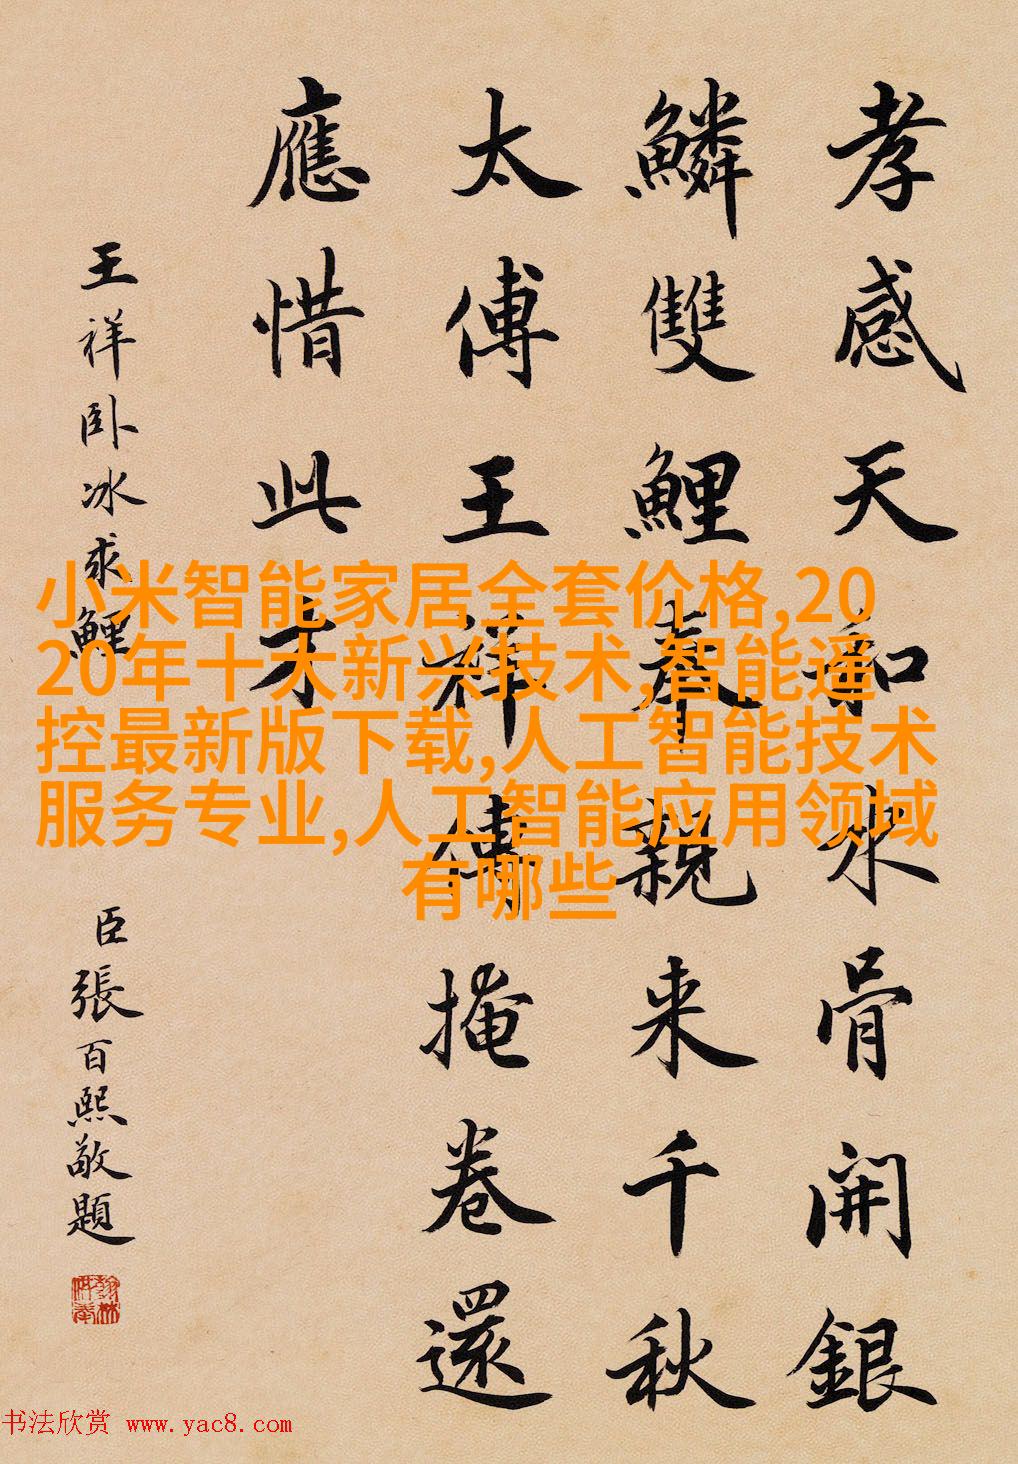 孝感天和氷骨開銀
鱗雙鯉奉親来千秋
太傅王祥傳掩卷還
應惜此才
王祥卧冰求鯉
臣張百熙敬題
小米智能家居全套价格,20
20年十大新兴技术,智能遥
控最新版下载,人工智能技术
服务专业,人工智能应用领域
有哪些
书法欣赏 www.yac8.com